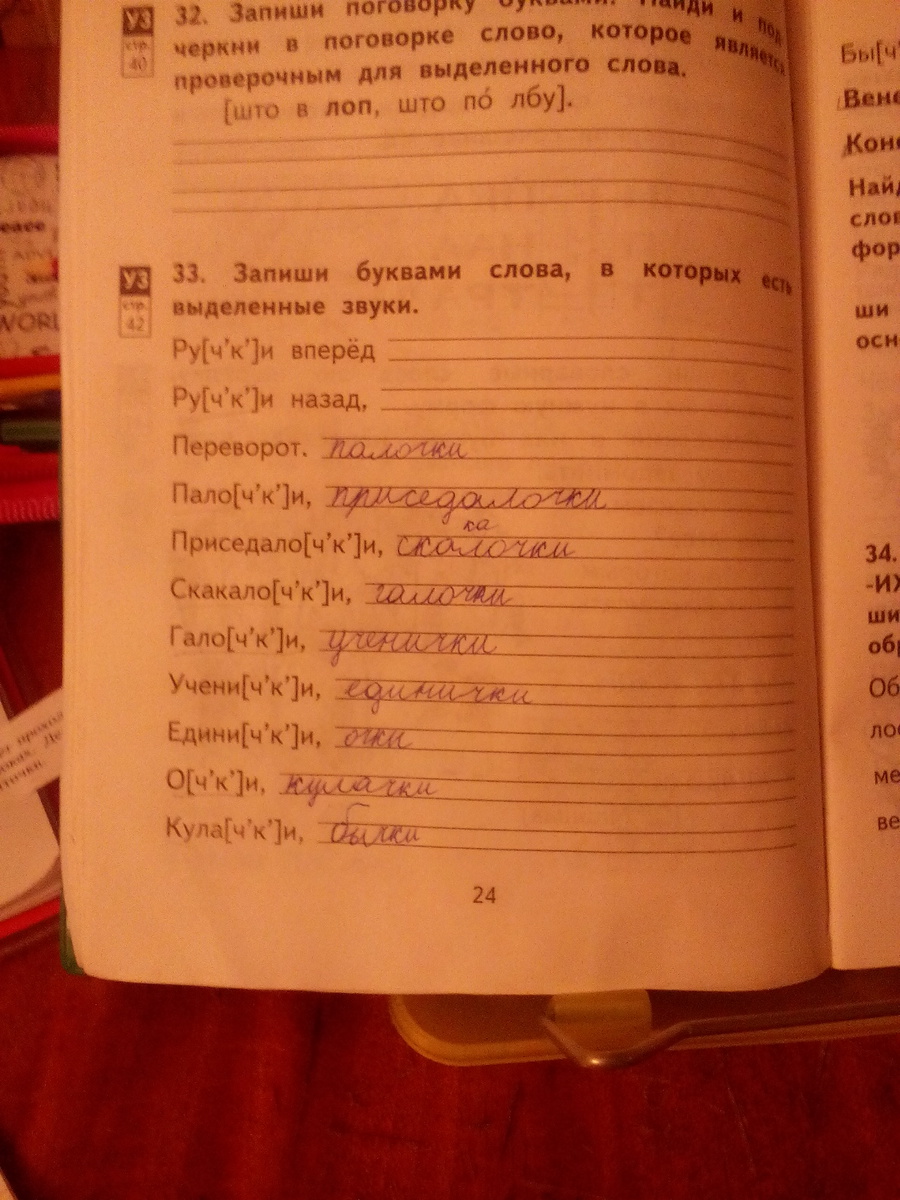 УЗ
стр.
40
32. Запиши поговорку буквами. Найди и под-
черкни в поговорке слово, которое является
проверочным для выделенного слова.
[што в лоп, што по́ лбу].
УЗ
стр.
42
33. Запиши буквами слова, в которых есть
выделенные звуки.
Ру[ч’к’]и вперёд
Ру[ч’к’]и назад,
Переворот. палочки
Пало[ч’к’]и, приседалочки
ка
Приседало[ч’к’]и, скалочки
Скакало[ч’к’]и, галочки
Гало[ч’к’]и, ученички
Учени[ч’к’]и, единички
Едини[ч’к’]и, очки
О[ч’к’]и, кулачки
Кула[ч’к’]и, бычки
24
Бы[ч’
Вене
Коне
Найд
слов
фор
ши
осн
34.
-ИХ
ши
обр
Об
лос
ме
ве
eace
WORL